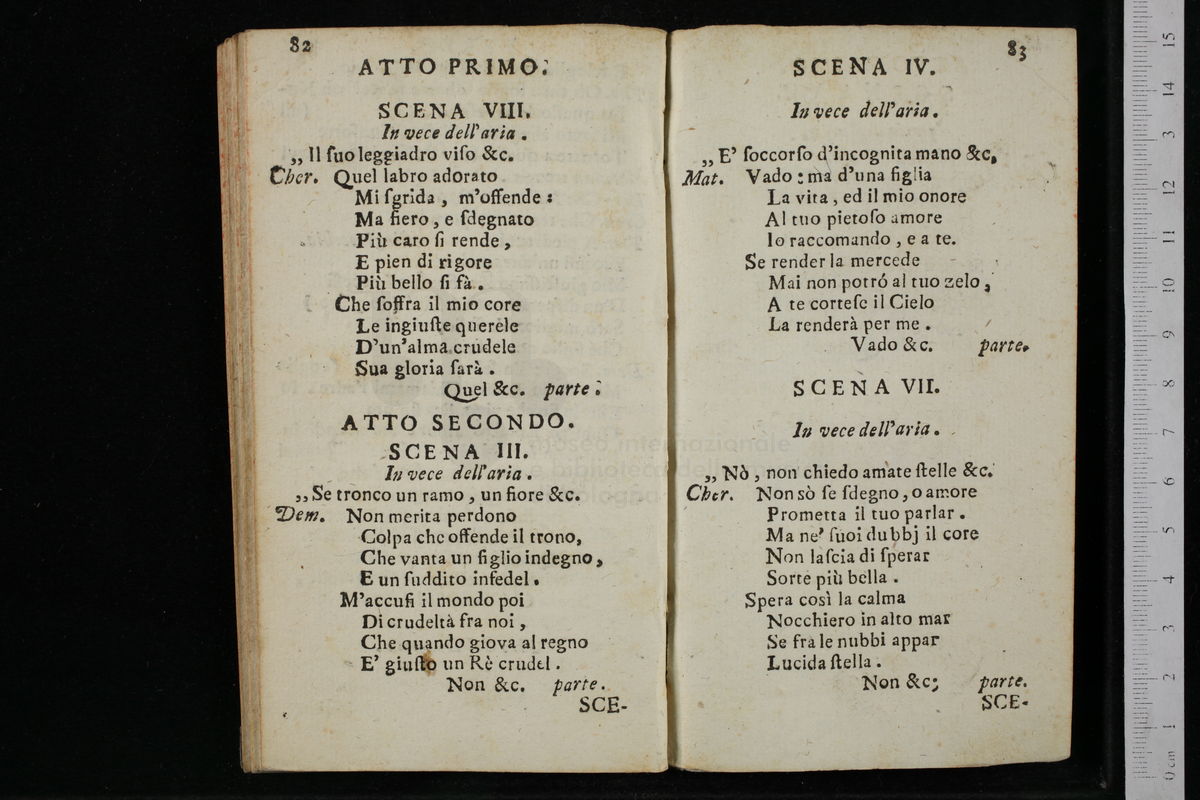 82
ATTO PRIMO.
SCENA VIII.
In vece dell'aria.
„ Il ſuo leggiadro viſo &c.
Cher. Quel labro adorato
Mi ſgrida, m'offende:
Ma fiero, e ſdegnato
Più caro ſi rende,
E pien di rigore
Più bello ſi fà.
Che ſoffra il mio core
Le ingiuſte querele
D'un'alma crudele
Sua gloria ſarà.
Quel &c. parte.
ATTO SECONDO.
SCENA III.
In vece dell'aria.
„ Se tronco un ramo, un fiore &c.
Dem. Non merita perdono
Colpa che offende il trono,
Che vanta un figlio indegno,
E un ſuddito infedel.
M'accuſi il mondo poi
Di crudeltà fra noi,
Che quando giova al regno
E' giuſto un Rè crudel.
Non &c. parte.
SCE-
83
SCENA IV.
In vece dell'aria.
„ E' ſoccorſo d'incognita mano &c.
Mat. Vado: ma d'una figlia
La vita, ed il mio onore
Al tuo pietoſo amore
Io raccomando, e a te.
Se render la mercede
Mai non potrò al tuo zelo,
A te corteſe il Cielo
La renderà per me.
Vado &c. parte.
SCENA VII.
In vece dell'aria.
„ Nò, non chiedo amate ſtelle &c.
Cher. Non sò ſe ſdegno, o amore
Prometta il tuo parlar.
Ma ne' ſuoi dubbj il core
Non laſcia di ſperar
Sorte più bella.
Spera così la calma
Nocchiero in alto mar
Se fra le nubbi appar
Lucida ſtella.
Non &c; parte.
SCE-
museo internazionale
e biblioteca della
bologna
0 cm 1 2 3 4 5 6 7 8 9 10 11 12 13 14 15